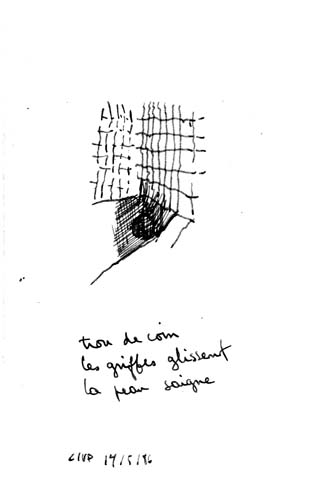 trou de coin
les griffes glissent
la peau saigne
CIVP 14/5/96